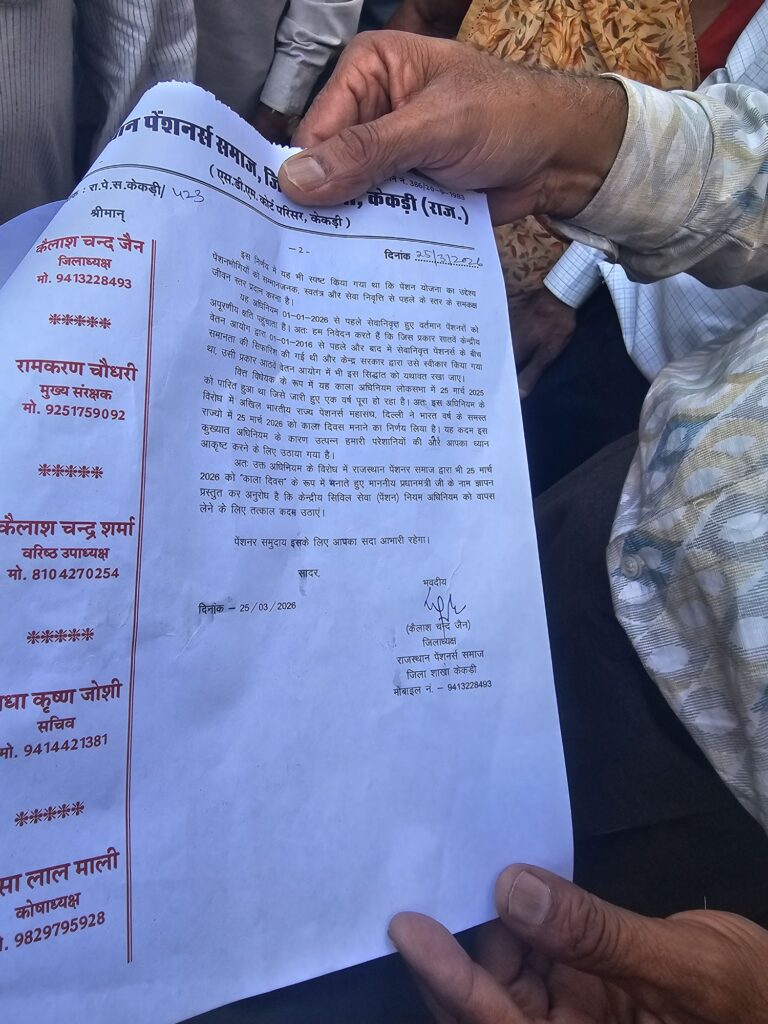 पेंशनर्स समाज, केकड़ी (राज.)
( एस.डी.एम. कोर्ट परिसर, केकड़ी )
: रा.पे.स.केकड़ी/ 423
श्रीमान्
दिनांक 25/3/2026
कैलाश चन्द जैन
जिलाध्यक्ष
मो. 9413228493
रामकरण चौधरी
मुख्य संरक्षक
मो. 9251759092
कैलाश चन्द्र शर्मा
वरिष्ठ उपाध्यक्ष
मो. 8104270254
कृष्ण जोशी
सचिव
मो. 9414421381
लाल माली
कोषाध्यक्ष
9829795928
– 2 –
इस निर्णय में यह भी स्पष्ट किया गया था कि पेंशन योजना का उद्देश्य
पेंशनभोगियों को सम्मानजनक, स्वतंत्र और सेवा निवृत्ति से पहले के स्तर के समकक्ष
जीवन स्तर प्रदान करना है।
यह अधिनियम 01-01-2026 से पहले सेवानिवृत्त हुए वर्तमान पेंशनरों को
अपूरणीय क्षति पहुंचाता है। अतः हम निवेदन करते हैं कि जिस प्रकार सातवें केन्द्रीय
वेतन आयोग द्वारा 01-01-2016 से पहले और बाद में सेवानिवृत्त पेंशनर्स के बीच
समानता की सिफारिश की गई थी और केन्द्र सरकार द्वारा उसे स्वीकार किया गया
था, उसी प्रकार आठवें वेतन आयोग में भी इस सिद्धांत को यथावत रखा जाए।
वित्त विधेयक के रूप में यह काला अधिनियम लोकसभा में 25 मार्च 2025
को पारित हुआ था जिसे जारी हुए एक वर्ष पूरा हो रहा है। अतः इस अधिनियम के
विरोध में अखिल भारतीय राज्य पेंशनर्स महासंघ, दिल्ली ने भारत वर्ष के समस्त
राज्यो में 25 मार्च 2026 को काला दिवस मनाने का निर्णय लिया है। यह कदम इस
कुख्यात अधिनियम के कारण उत्पन्न हमारी परेशानियों की और आपका ध्यान
आकृष्ट करने के लिए उठाया गया है।
अतः उक्त अधिनियम के विरोध में राजस्थान पेंशनर समाज द्वारा भी 25 मार्च
2026 को "काला दिवस" के रूप में मनाते हुए माननीय प्रधानमंत्री जी के नाम ज्ञापन
प्रस्तुत कर अनुरोध है कि केन्द्रीय सिविल सेवा (पेंशन) नियम अधिनियम को वापस
लेने के लिए तत्काल कदम उठाएं।
पेंशनर समुदाय इसके लिए आपका सदा आभारी रहेगा।
सादर,
भवदीय
दिनांक – 25/03/2026
(कैलाश चन्द जैन)
जिलाध्यक्ष
राजस्थान पेंशनर्स समाज
जिला शाखा केकड़ी
मोबाइल नं. – 9413228493